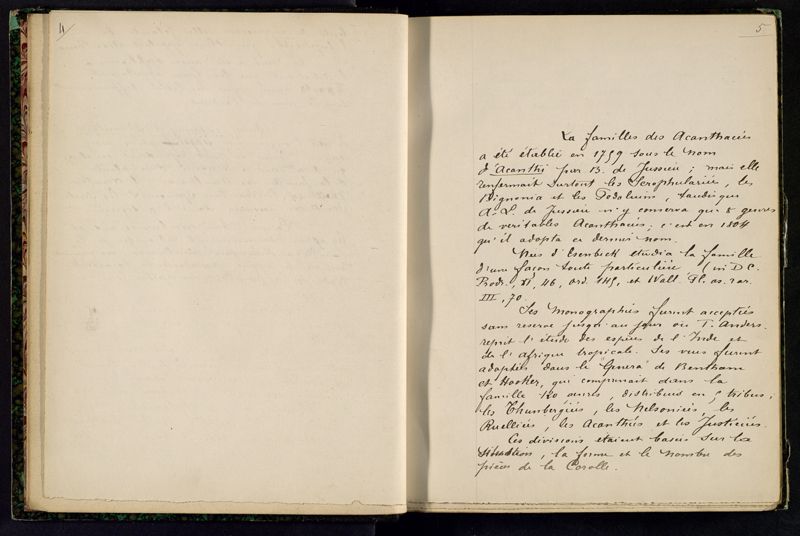 4
5
La familles des Acanthacées
a été établie en 1759 sous le nom
d'Acanthi par B. de Jussieu ; mais elle
renfermait surtout les Scrophulariées, les
Bignonia et les Pedalium, tandis que
A. L. de Jussieu n'y conserva que 8 genres
de veritables Acanthacées ; c'est en 1804
qu'il adopta ce dernier nom.
Nees d'Esenbeck etudia la famille
d'une façon toute particulière (in D C.
Prodr., XI, 46, ord. 149, et Wall. Pl. as. rar.
III, 70.
Ses Monographies furent acceptées
sans reserve jusqu'au jour où T. Anders.
reprit l'étude des espèces de l'Inde et
de l'Afrique tropicale. Ses vues furent
adoptées dans le "Genera" de Bentham
et Hooker, qui comprenait dans la
famille 120 genres, distribués en 5 tribus ;
les Thunbergiées, les Nelsoniées, les
Ruelliées, les Acanthées et les Justiciées.
Ces divisions étaient basées sur la
, la forme et le nombre des
pièces de la Corolle.